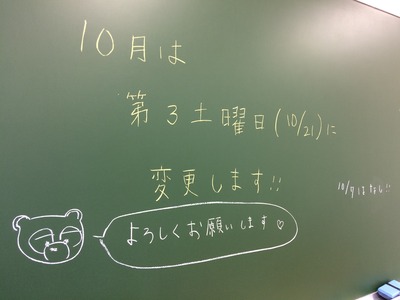 10月は
第3土曜日(10/21)に
変更します!!
10/7はなし!!
よろしくお願いします♡